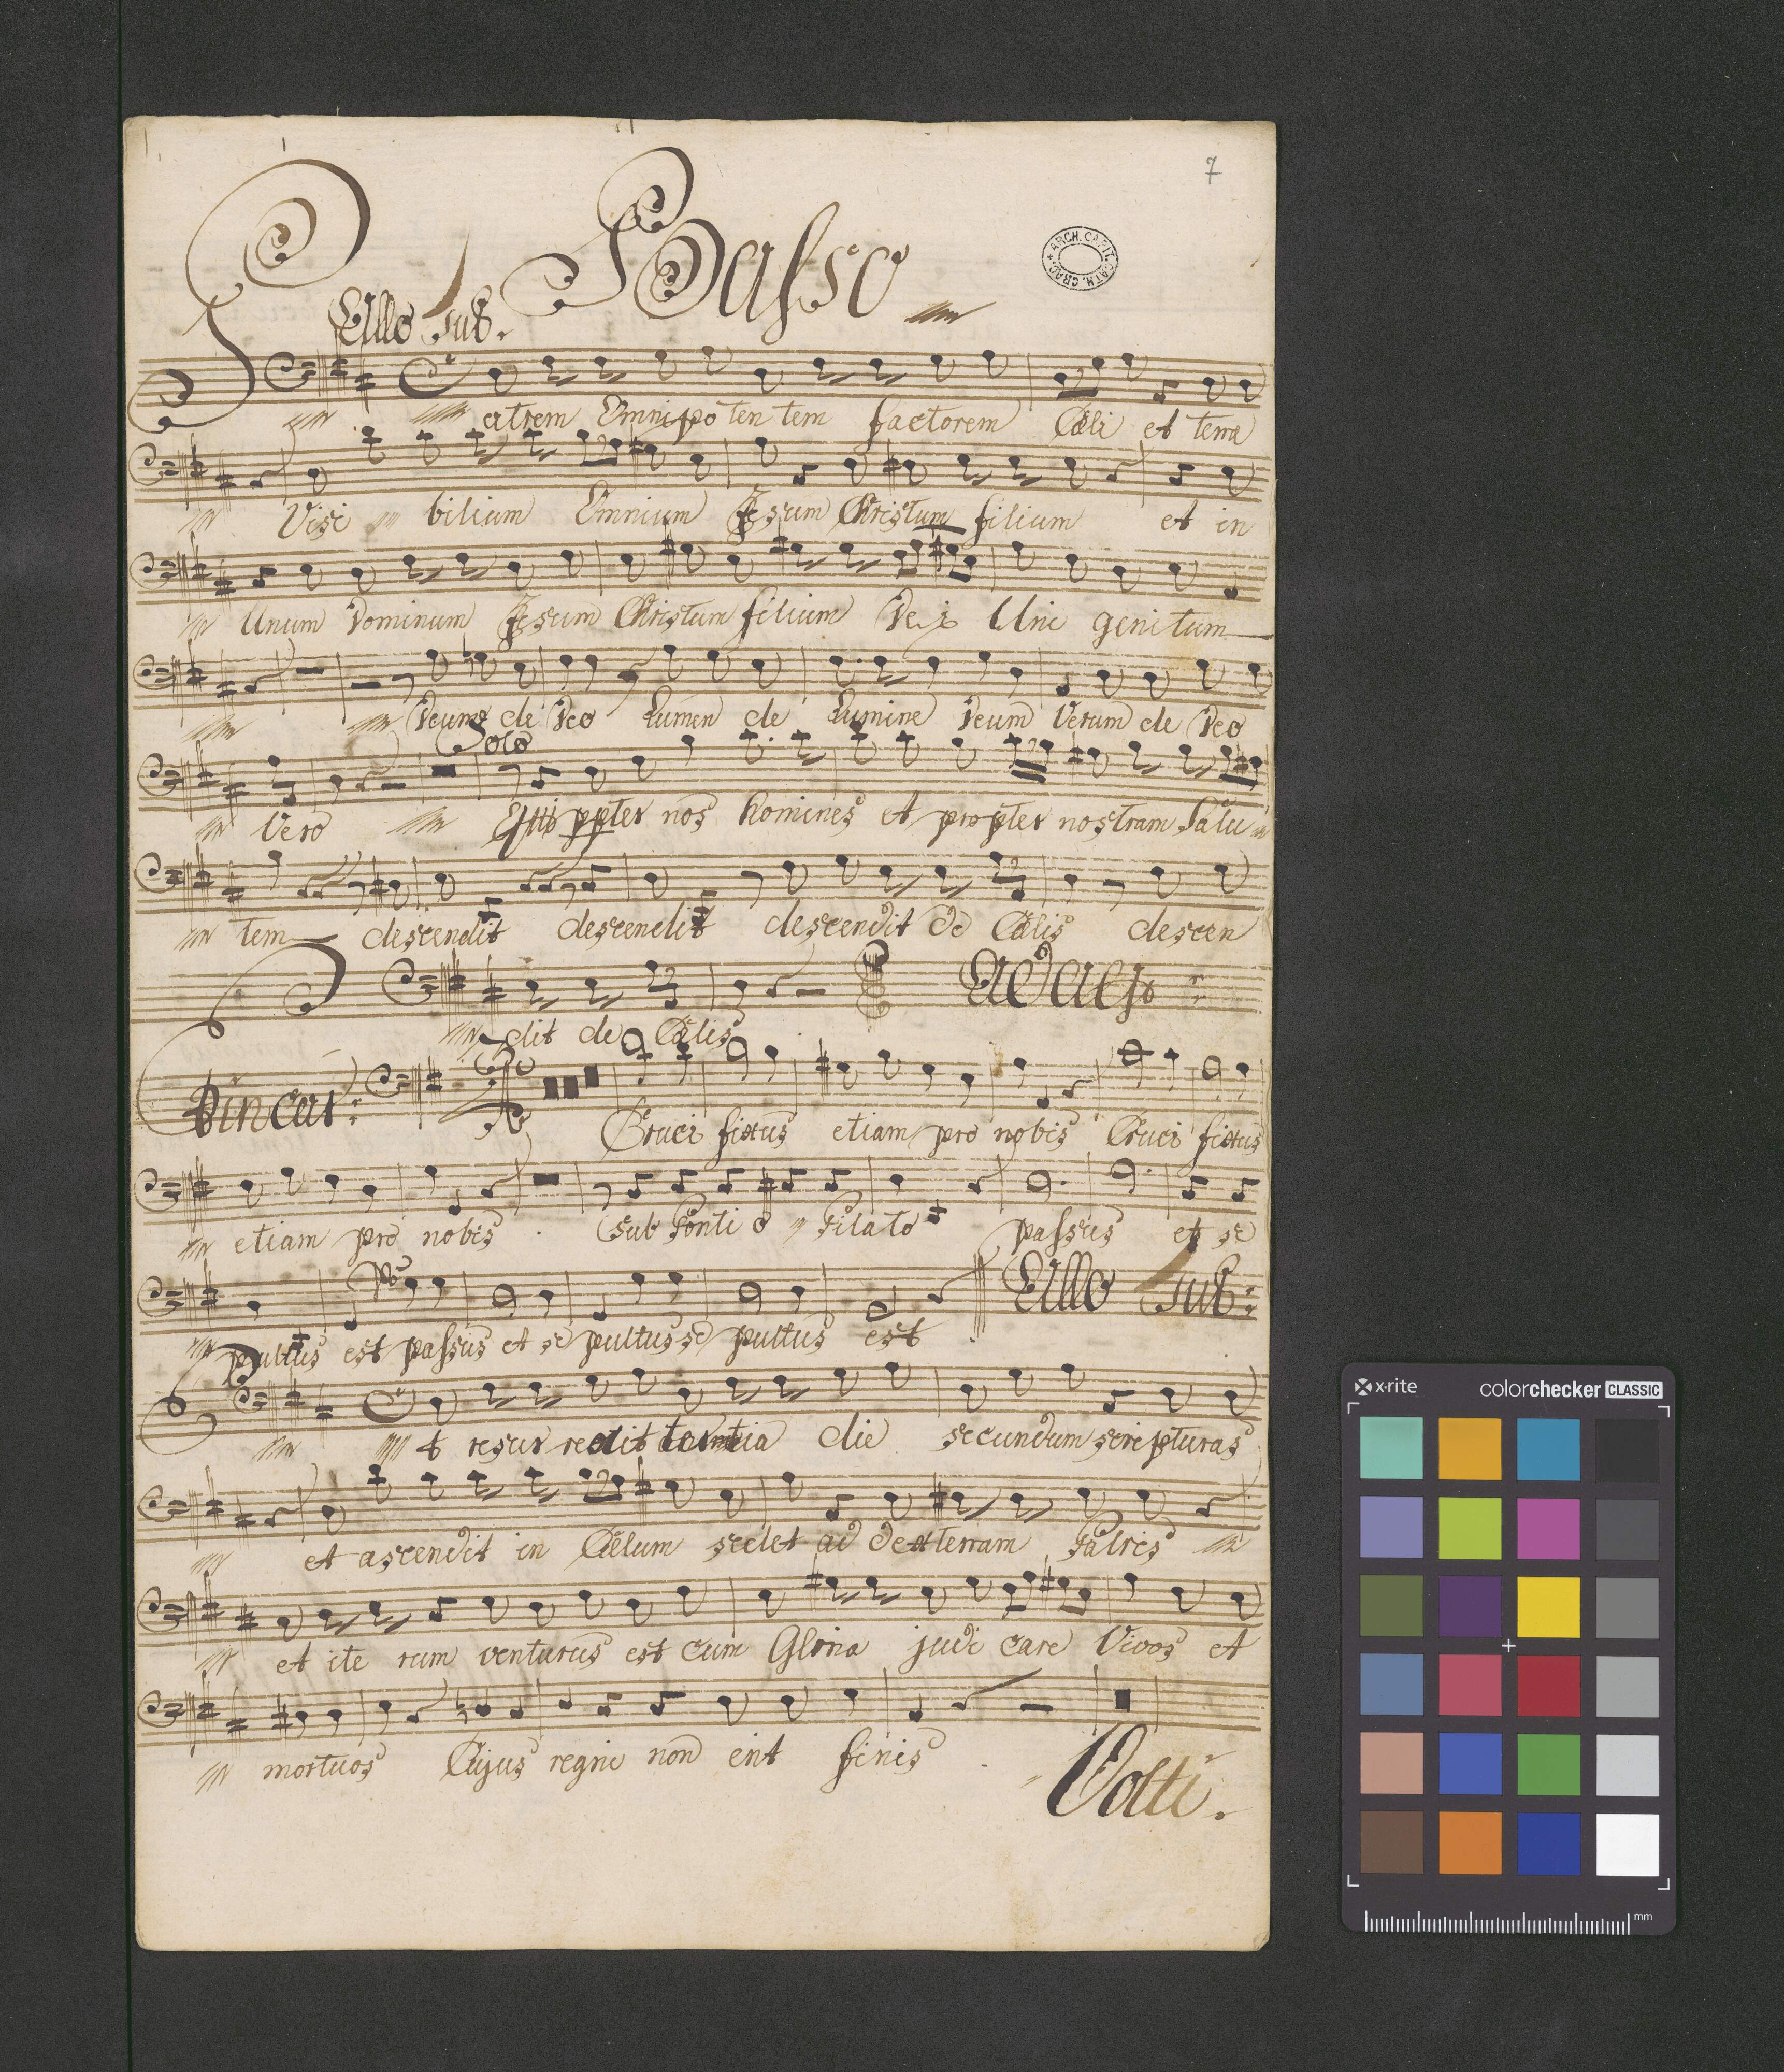 7
Basso
ARCH. CAPIT. CATH. CRAC.
Allo
Patrem Omnipotentem factorem Cæli et terræ
Visi bilium Omnium Jesum Christum filium et in
Unum Dominum Jesum Christum filium Dei Uni genitum
Deum de Deo Lumen de Lumine Deum Verum de Deo
Solo
Vero ppter nos homines et propter nostram Salu
tem descendit descendit descendit de Cælis descen
Adago
dit de Cælis
Bincar:
Cruci fixus etiam pro nobis Cruci fixus
etiam pro nobis sub Ponti o Pilato passus et se
Po
Allo
pultus est passus et se pultus se pultus est
Et resur rexit tertia die secundum scripturas
et ascendit in Cælum sedet ad dexterram Patris
et ite rum venturus est cum Gloria judi care Vivos et
mortuos Cujus regni non erit finis
Volti.
x-rite
colorchecker CLASSIC
mm